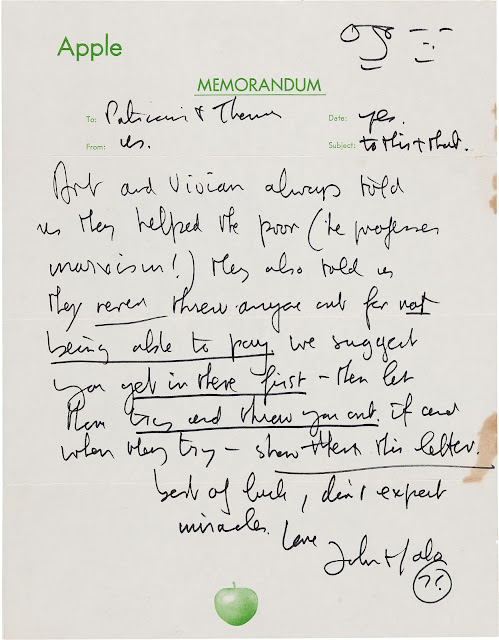 Apple
MEMORANDUM
To: Patricia + Them
Date: yes.
From: us.
Subject: to this + that.
Art and Vivian always told
us they helped the poor (he professes
marxism!) they also told us
they never threw anyone out for not
being able to pay. we suggest
you get in there first – then let
them try and throw you out. if and
when they try – show them this letter.
best of luck, don't expect
miracles. love
John +
??